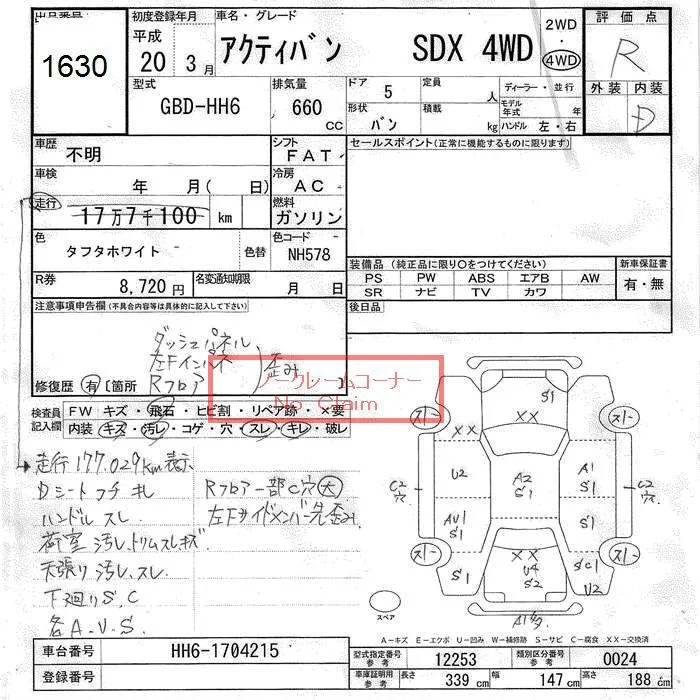 出品番号
1630
初度登録年月
平成
20 3月
車名・グレード
アクティバン SDX 4WD
2WD
・
4WD
評価点
R
外装 内装
D
型式
GBD-HH6
排気量
660
CC
ドア
5
定員
人
形状
バン
積載
kg
ディーラー・並行
モデル年式 年
ハンドル 左・右
車歴
不明
シフト
FAT
車検
年 月( 日)
冷房
AC
走行
17万7千100 km
燃料
ガソリン
色
タフタホワイト
色替
色コード
NH578
R券
8,720円
名変通知期限
月 日
セールスポイント(正常に機能するものに限ります)
装備品 (純正品に限り○をつけてください)
PS PW ABS エアB AW
SR ナビ TV カワ
新車保証書
有・無
後日品
注意事項申告欄(不具合内容等は具体的に記入して下さい)
ダッシュパネル
左Fインパネ
Rフロア
歪み
修復歴 有 [箇所 ]
ノークレームコーナー
No Claim
検査員記入欄
FW キズ・飛石・ヒビ割・リペア跡・×要
内装 キズ・汚レ・コゲ・穴・スレ・キレ・破レ
走行177.029km表示
Dシートフチ キレ
ハンドル スレ
荷室 汚レ、トリムスレキズ
天張り 汚レ、スレ
下廻りS、C
各A.U.S.
Rフロアー部C穴大
左Fサイドメンバー先歪み
S1
スペア
A-キズ E-エクボ U-凹み W-補修跡 S-サビ C-腐食 XX-交換済
車台番号
HH6-1704215
登録番号
型式指定番号 参考
12253
類別区分番号 参考
0024
車庫証明用 参考
長さ 339 cm
幅 147 cm
高さ 188 cm